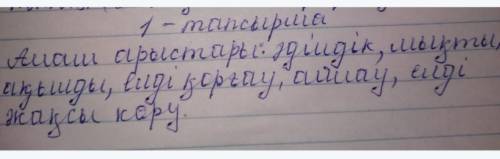 1-тапсырма
Алаш арыстары: әділдік, мықты,
ақылды, елді қорғау, ойлау, елді
жақсы көру.